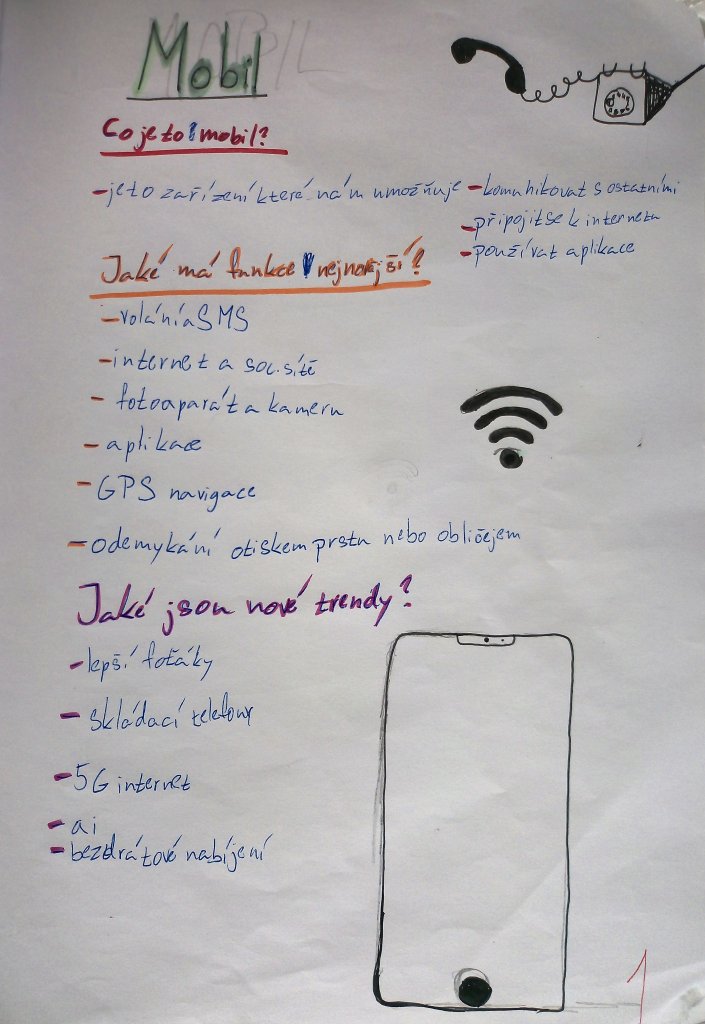 Mobil
Co je to mobil?
-je to zařízení které nám umožňuje -komunikovat s ostatními
-připojit se k internetu
-používat aplikace
Jaké má funkce nejnovější?
-volání a SMS
-internet a soc. sítě
- fotoaparát a kameru
- aplikace
- GPS navigace
- odemykání otiskem prstu nebo obličejem
Jaké jsou nové trendy?
- lepší foťáky
- skládací telefony
- 5G internet
- ai
- bezdrátové nabíjení
1